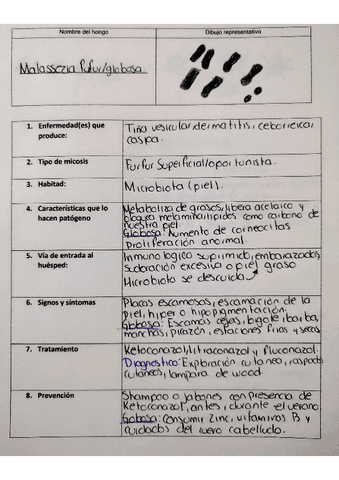 Nombre del hongo
Dibujo representativo
Malassezia furfur/globosa
1. Enfermedad(es) que produce:
Tiña vesicular, dermatitis, ceborreica,
caspa.
2. Tipo de micosis
Furfur Superficial/oportunista.
3. Habitad:
Microbiota (piel).
4. Características que lo hacen patógeno
Metaboliza de grasas, libera acelaico y
bloquea metamina lípidos como carbono de
nuestra piel
Globosa: Aumento de corneocitas
Proliferación anormal.
5. Vía de entrada al huésped:
Inmunologico suprimido, embarazadas
Sudoración excesiva o piel grasa
Microbiota se descuida
6. Signos y síntomas
Placas escamosas, escamación de la
piel, hiper o hipopigmentación.
Globosa: Escamas cejas, bigote, barba,
manchas, picazón, estaciones frias y secas
7. Tratamiento
Ketoconazol, Itraconazol y Fluconazol.
Diagnostico: Exploración cutanea, raspado
cutaneo, lampara de wood
8. Prevención
Shampoo o jabones con presencia de
Ketoconazol, antes, durante el verano.
Globosa: Consumir Zinc, vitaminas B y
cuidados del cuero cabelludo.